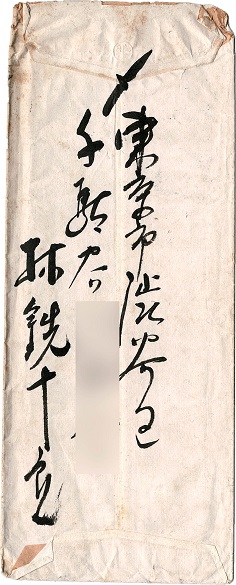 〆
東京市渋谷区
千駄谷
林銑十郎